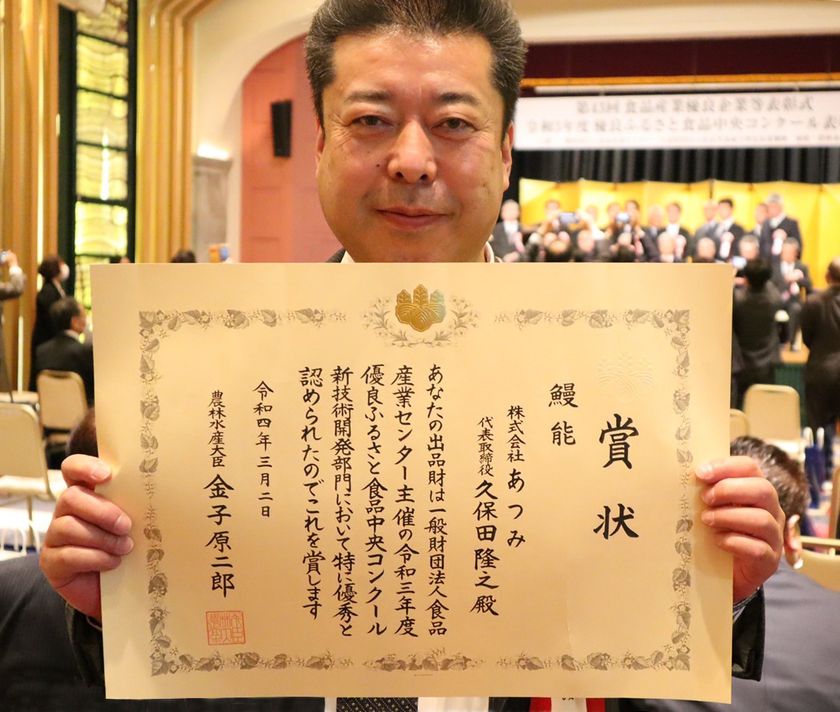 第45回 食品産業優良企業等表彰式
令和3年度 優良ふるさと食品中央コンクール表
賞状
鰻能
株式会社 あつみ
代表取締役 久保田隆之 殿
あなたの出品財は一般財団法人食品
産業センター主催の令和三年度
優良ふるさと食品中央コンクール
新技術開発部門において特に優秀と
認められたのでこれを賞します
令和四年三月二日
農林水産大臣 金子原二郎